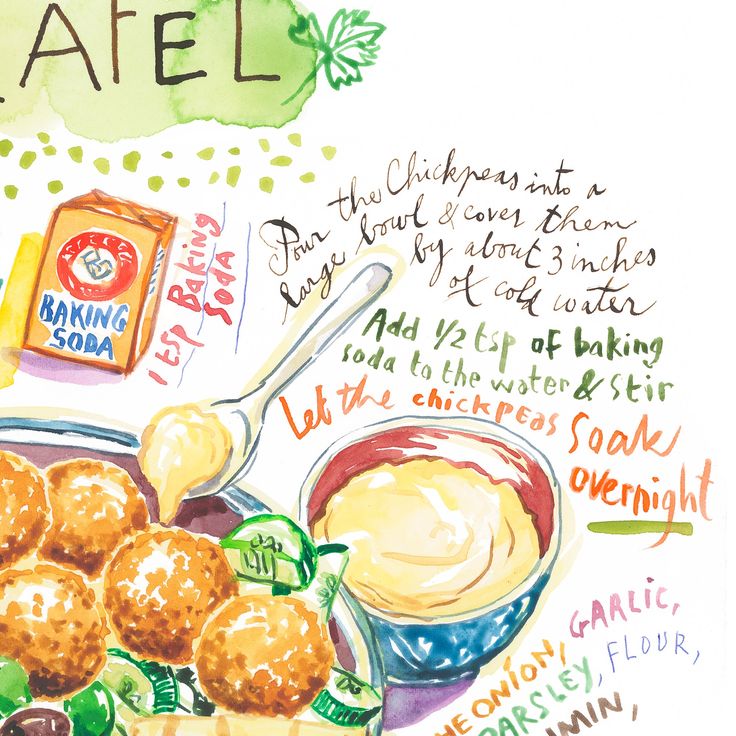 AFEL
Pour the Chickpeas into a
large bowl & cover them
by about 3 inches
of cold water
BAKING
SODA
1 tsp Baking
Soda
Add 1/2 tsp of baking
soda to the water & Stir
Let the chickpeas Soak
overnight
GARLIC,
HE ONION,
FLOUR,
PARSLEY,
MIN,